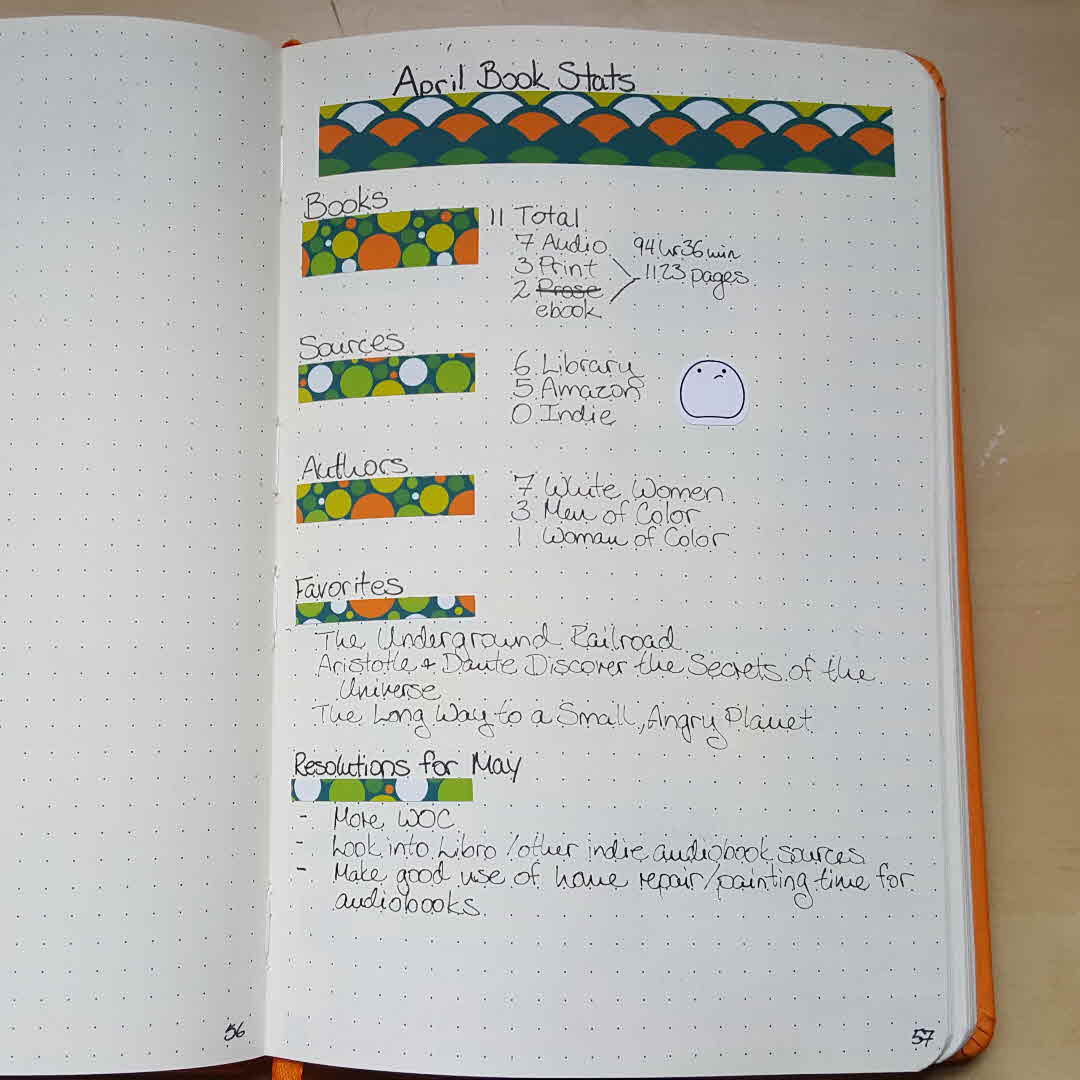 April Book Stats
Books
11 Total
7 Audio 94 hr 36 min
3 Print 1123 pages
2 Prose
ebook
Sources
6 Library
5 Amazon
0 Indie
Authors
7 White Women
3 Men of Color
1 Woman of Color
Favorites
The Underground Railroad
Aristotle + Dante Discover the Secrets of the
Universe
The Long Way to a Small, Angry Planet
Resolutions for May
- More WOC
- Look into Libro/other indie audiobook sources
- Make good use of home repair/painting time for
audiobooks.
56
57